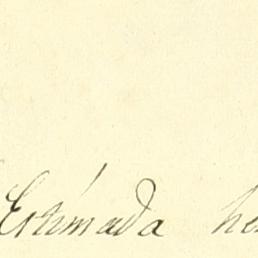 Estimada he